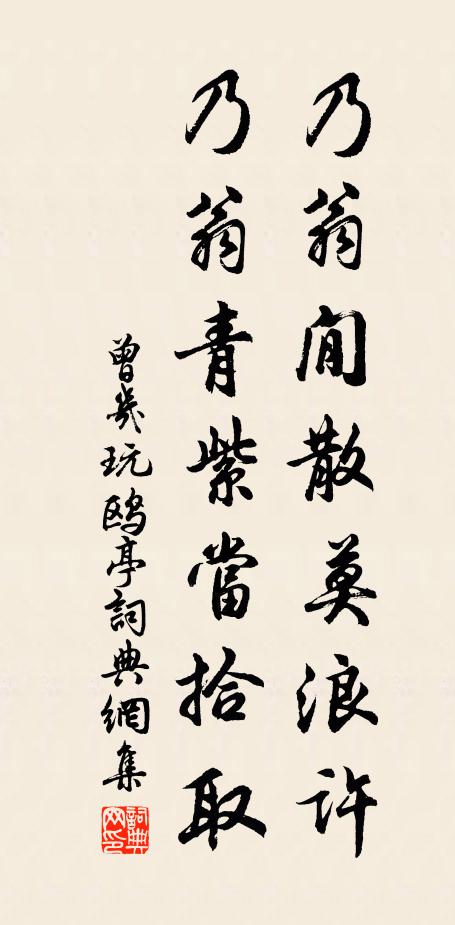 乃翁閒散莫浪許
乃翁青紫當拾取
曾幾玩鷗亭詞典網集
詞典网印